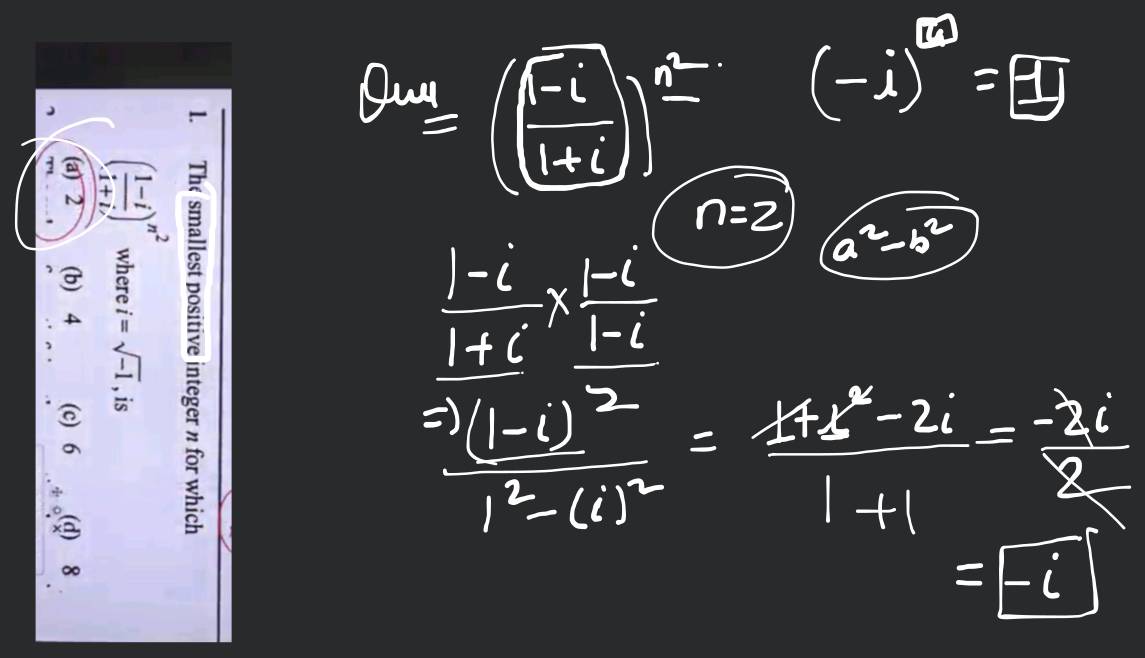 1. The smallest positive integer n for which
(1-i / 1+i)^n² where i = √-1, is
(a) 2 (b) 4 (c) 6 (d) 8
Ques (1-i / 1+i)^n²
(-i)^4 = 1
n=2
a²-b²
1-i / 1+i × 1-i / 1-i
=> (1-i)² / 1²-(i)² = 1+i²-2i / 1+1 = -2i / 2
= -i